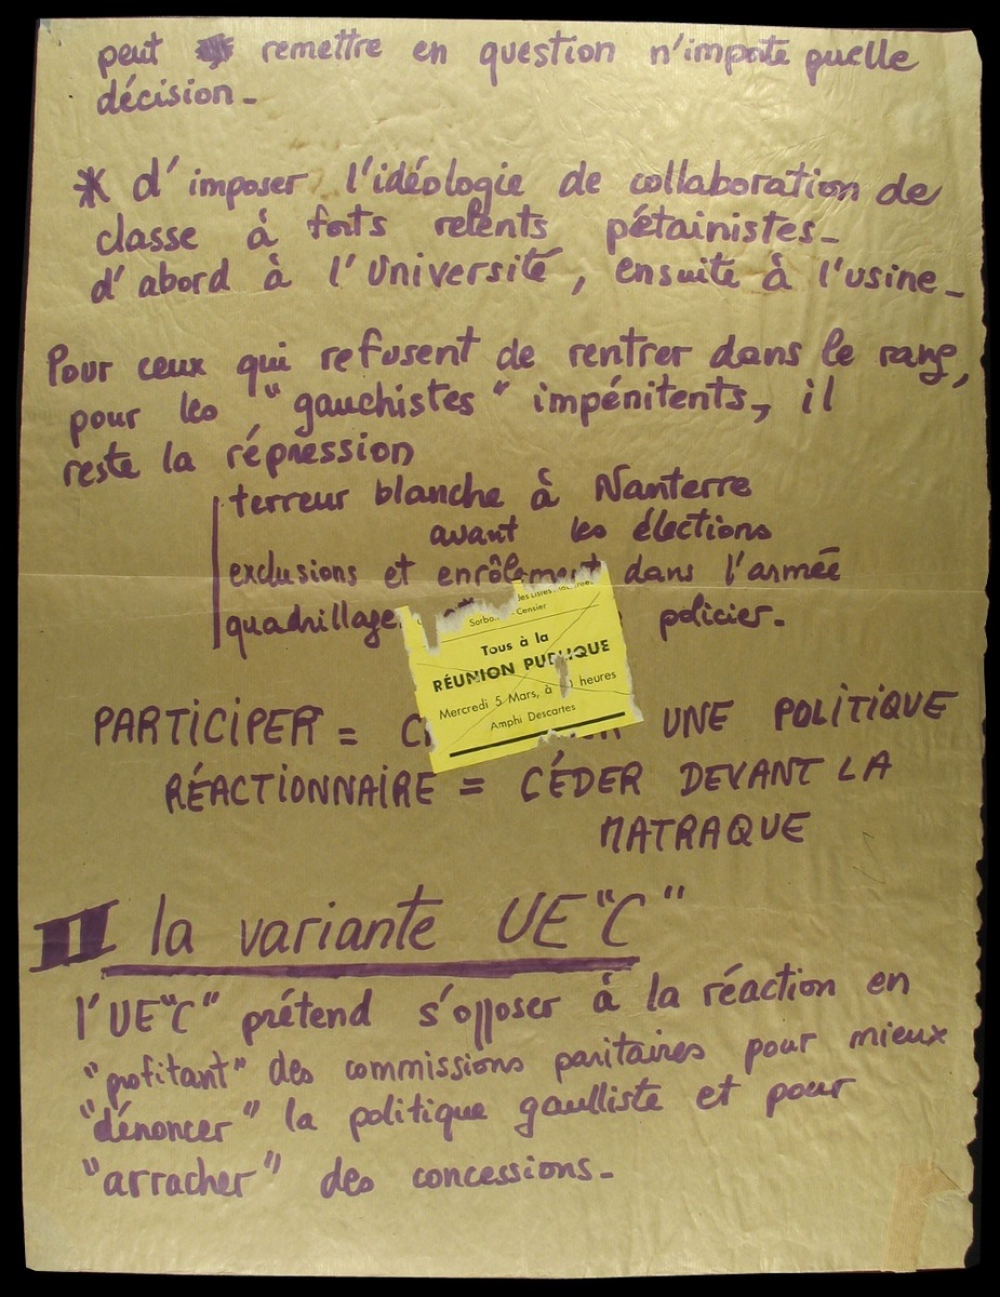 peut remettre en question n'importe quelle
décision -
* d'imposer l'idéologie de collaboration de
classe à forts relents pétainistes -
d'abord à l'Université, ensuite à l'usine -
Pour ceux qui refusent de rentrer dans le rang,
pour les "gauchistes" impénitents, il
reste la répression
terreur blanche à Nanterre
avant les élections
exclusions et enrôlement dans l'armée
quadrillage policier.
Censier
Tous à la
RÉUNION PUBLIQUE
Mercredi 5 Mars, à heures
Amphi Descartes
PARTICIPER = UNE POLITIQUE
RÉACTIONNAIRE = CÉDER DEVANT LA
MATRAQUE
II la variante UE"C"
l'UE"C" prétend s'opposer à la réaction en
"profitant" des commissions paritaires pour mieux
"dénoncer" la politique gaulliste et pour
"arracher" des concessions -